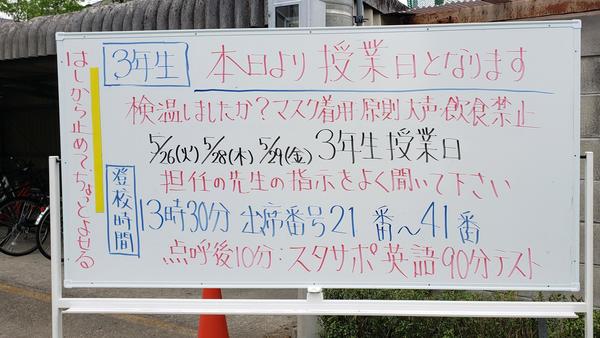 3年生 本日より授業日となります
検温しましたか?マスク着用 原則 大声・飲食禁止
5/26(火) 5/28(木) 5/29(金) 3年生授業日
担任の先生の指示をよく聞いて下さい
登校時間 13時30分 出席番号21番~41番
点呼後10分:スタサポ英語90分テスト
はしから止めてちょっとよせる